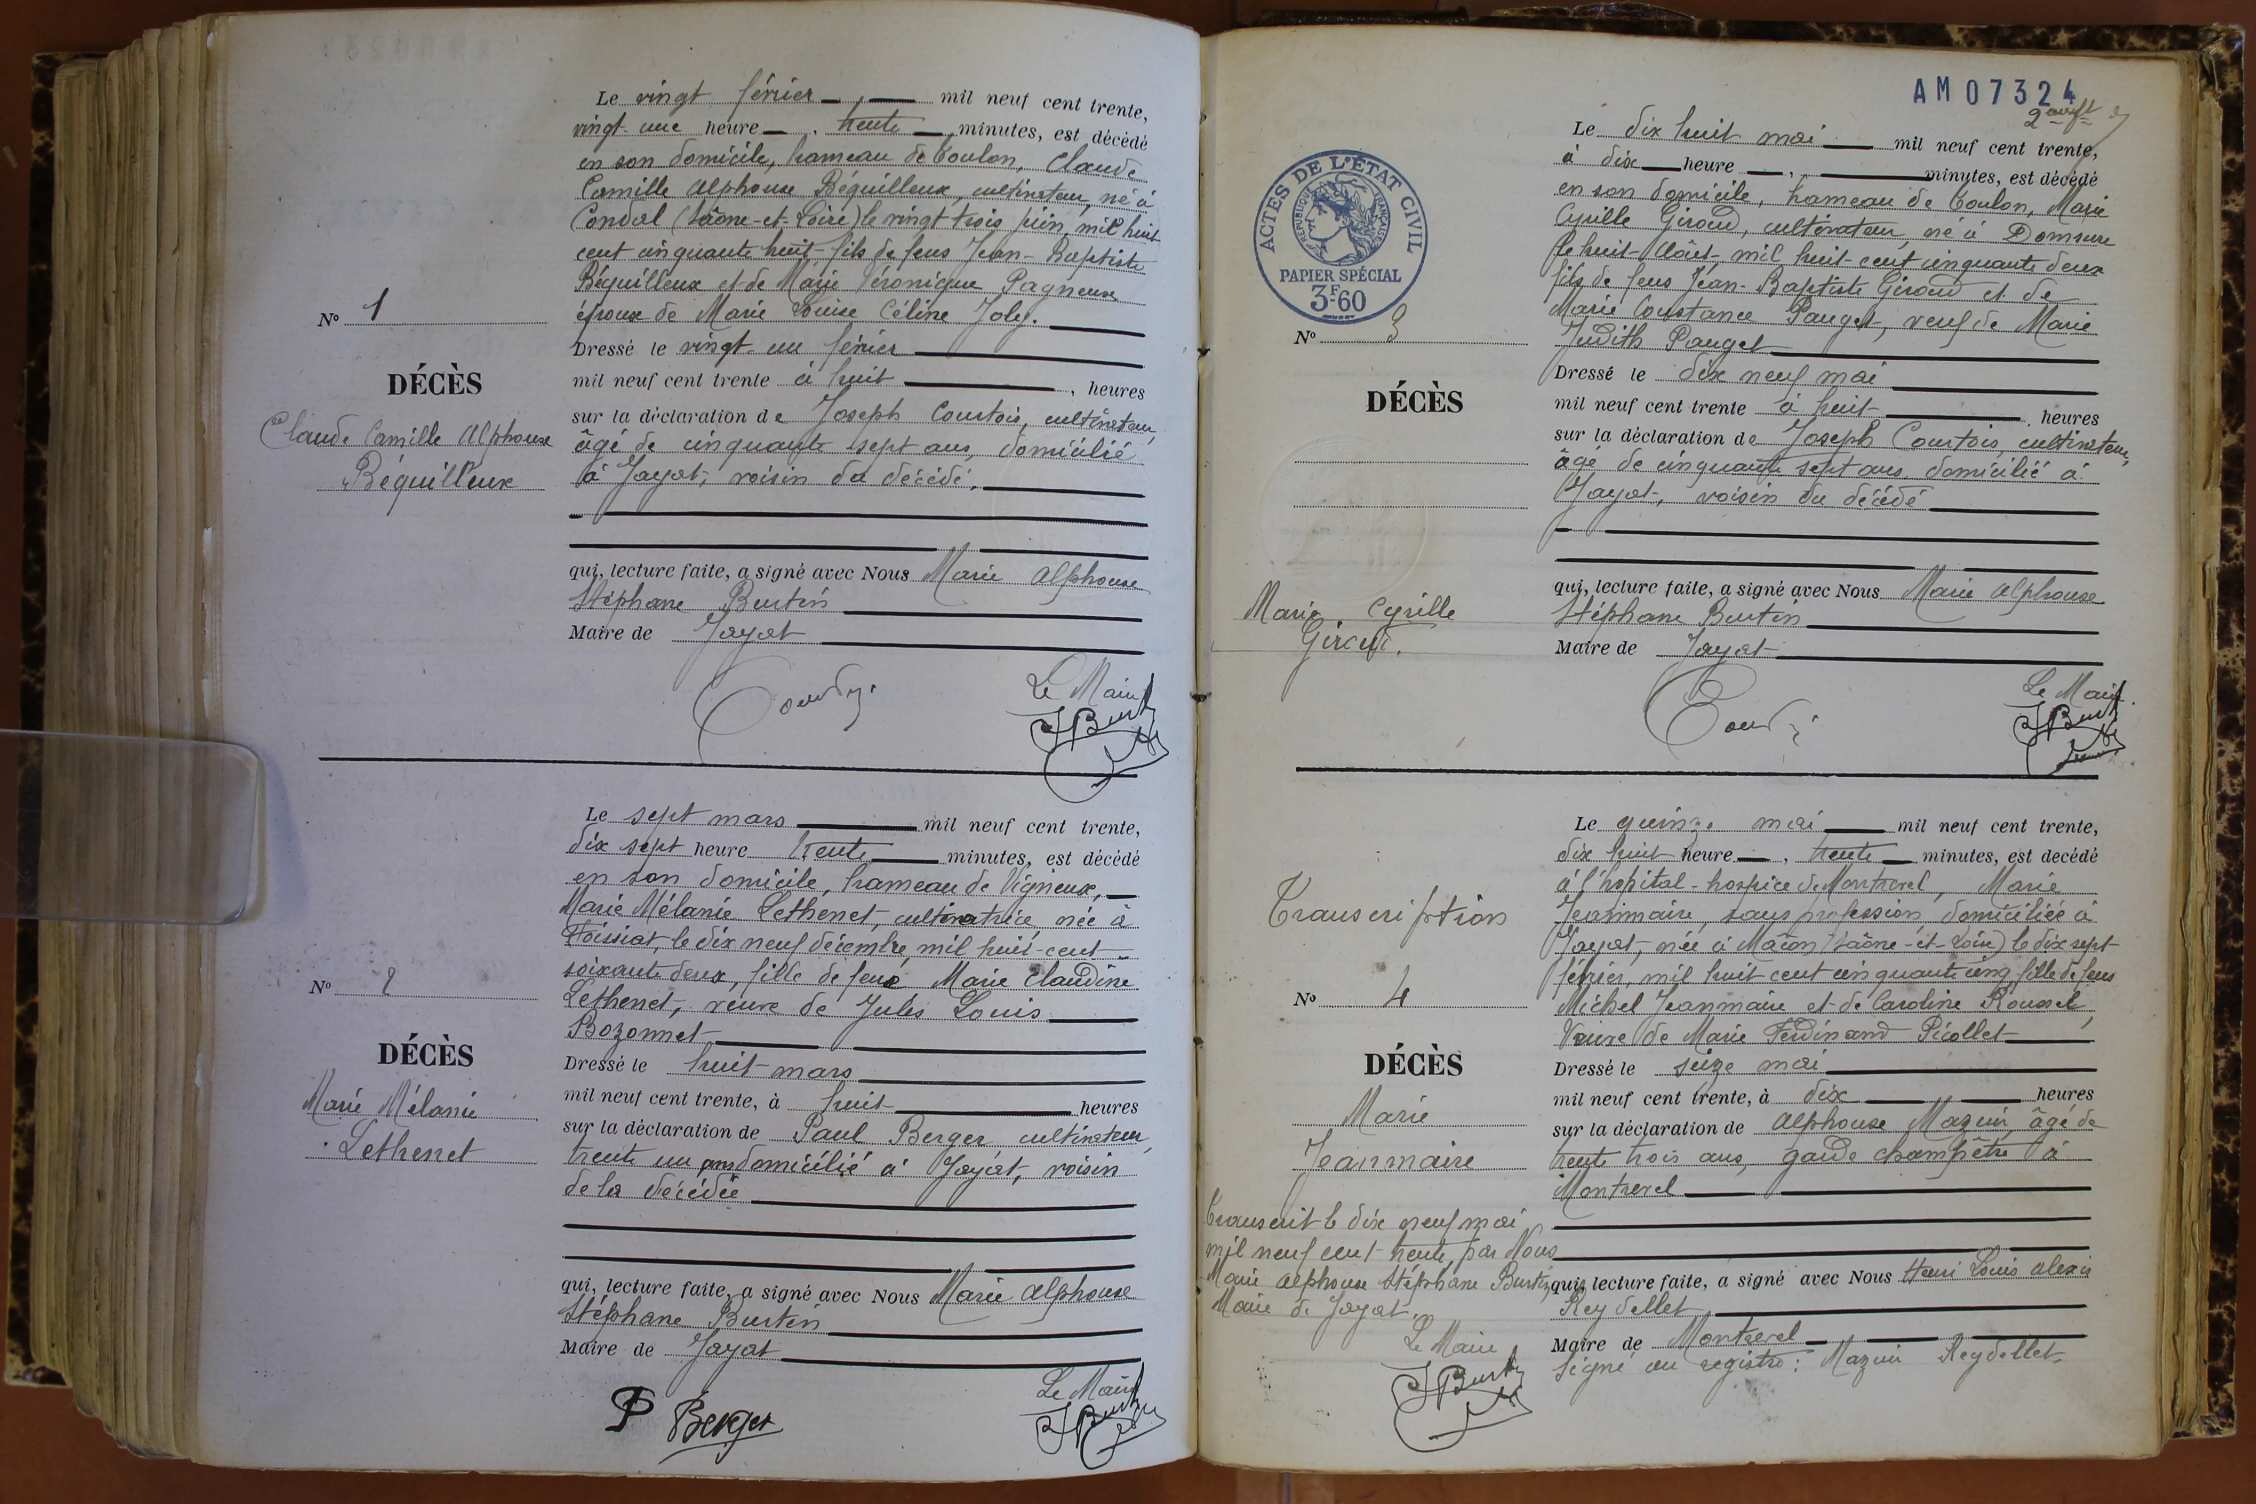 Le vingt février mil neuf cent trente,
vingt-une heure trente minutes, est décédé
en son domicile, hameau de Toulon, Claude
Camille Alphonse Béquilleux, cultivateur, né à
Condal (Saône-et-Loire) le vingt trois juin, mil huit
cent cinquante huit, fils de feus Jean-Baptiste
Béquilleux et de Marie Véronique Pagneux
époux de Marie Louise Céline Joly.
Dressé le vingt-un février
mil neuf cent trente à huit , heures
sur la déclaration de Joseph Courtois, cultivateur,
âgé de cinquante sept ans, domicilié
à Jayat, voisin du décédé,
qui, lecture faite, a signé avec Nous Marie Alphonse
Stéphane Burtin
Maire de Jayat
Le Maire
Nº 1
DÉCÈS
Claude Camille Alphonse
Béquilleux
Le sept mars mil neuf cent trente,
dix sept heure trente minutes, est décédé
en son domicile, hameau de Vigneux,
Marie Mélanie Lethenet, cultivatrice, née à
Foissiat, le dix neuf décembre, mil huit-cent
soixante deux, fille de feue Marie Claudine
Lethenet, veuve de Jules Louis
Bozonnet
Dressé le huit mars
mil neuf cent trente, à huit heures
sur la déclaration de Paul Berger, cultivateur,
trente un ans domicilié à Jayat, voisin
de la décédée
qui, lecture faite, a signé avec Nous Marie Alphonse
Stéphane Burtin
Maire de Jayat
Le Maire
P Berger
Nº 2
DÉCÈS
Marie Mélanie
Lethenet
AM07324
ACTES DE L'ÉTAT CIVIL
RÉPUBLIQUE FRANÇAISE
PAPIER SPÉCIAL
3F60
Le dix huit mai mil neuf cent trente,
à dix heure , minutes, est décédé
en son domicile, hameau de Toulon, Marie
Cyrille Giroud, cultivateur, né à Domsure
le huit Août, mil huit-cent cinquante deux
fils de feus Jean-Baptiste Giroud et de
Marie Constance Pauget, veuf de Marie
Judith Pauget
Dressé le dix neuf mai
mil neuf cent trente à huit , heures
sur la déclaration de Joseph Courtois, cultivateur,
âgé de cinquante sept ans, domicilié à
Jayat, voisin du décédé
qui, lecture faite, a signé avec Nous Marie Alphonse
Stéphane Burtin
Maire de Jayat
Le Maire
Nº 3
DÉCÈS
Marie Cyrille
Giroud.
Le quinze mai mil neuf cent trente,
dix huit heure , trente minutes, est décédé
à l'hôpital-hospice de Montrevel, Marie
Jeanmaire, sans profession, domiciliée à
Jayat, née à Mâcon (Saône-et-Loire) le dix sept
février, mil huit cent cinquante cinq, fille de feus
Michel Jeanmaire et de Caroline Roussel,
Veuve de Marie Ferdinand Picollet
Dressé le seize mai
mil neuf cent trente, à dix heures
sur la déclaration de Alphonse Mazuir, âgé de
trente trois ans, garde champêtre à
Montrevel
qui, lecture faite, a signé avec Nous Henri Louis Alexis
Reydellet
Maire de Montrevel
Signé au registre : Mazuir Reydellet.
Transcription
Nº 4
DÉCÈS
Marie
Jeanmaire
Transcrit le dix neuf mai
mil neuf cent-trente, par Nous
Marie Alphonse Stéphane Burtin,
Maire de Jayat.
Le Maire